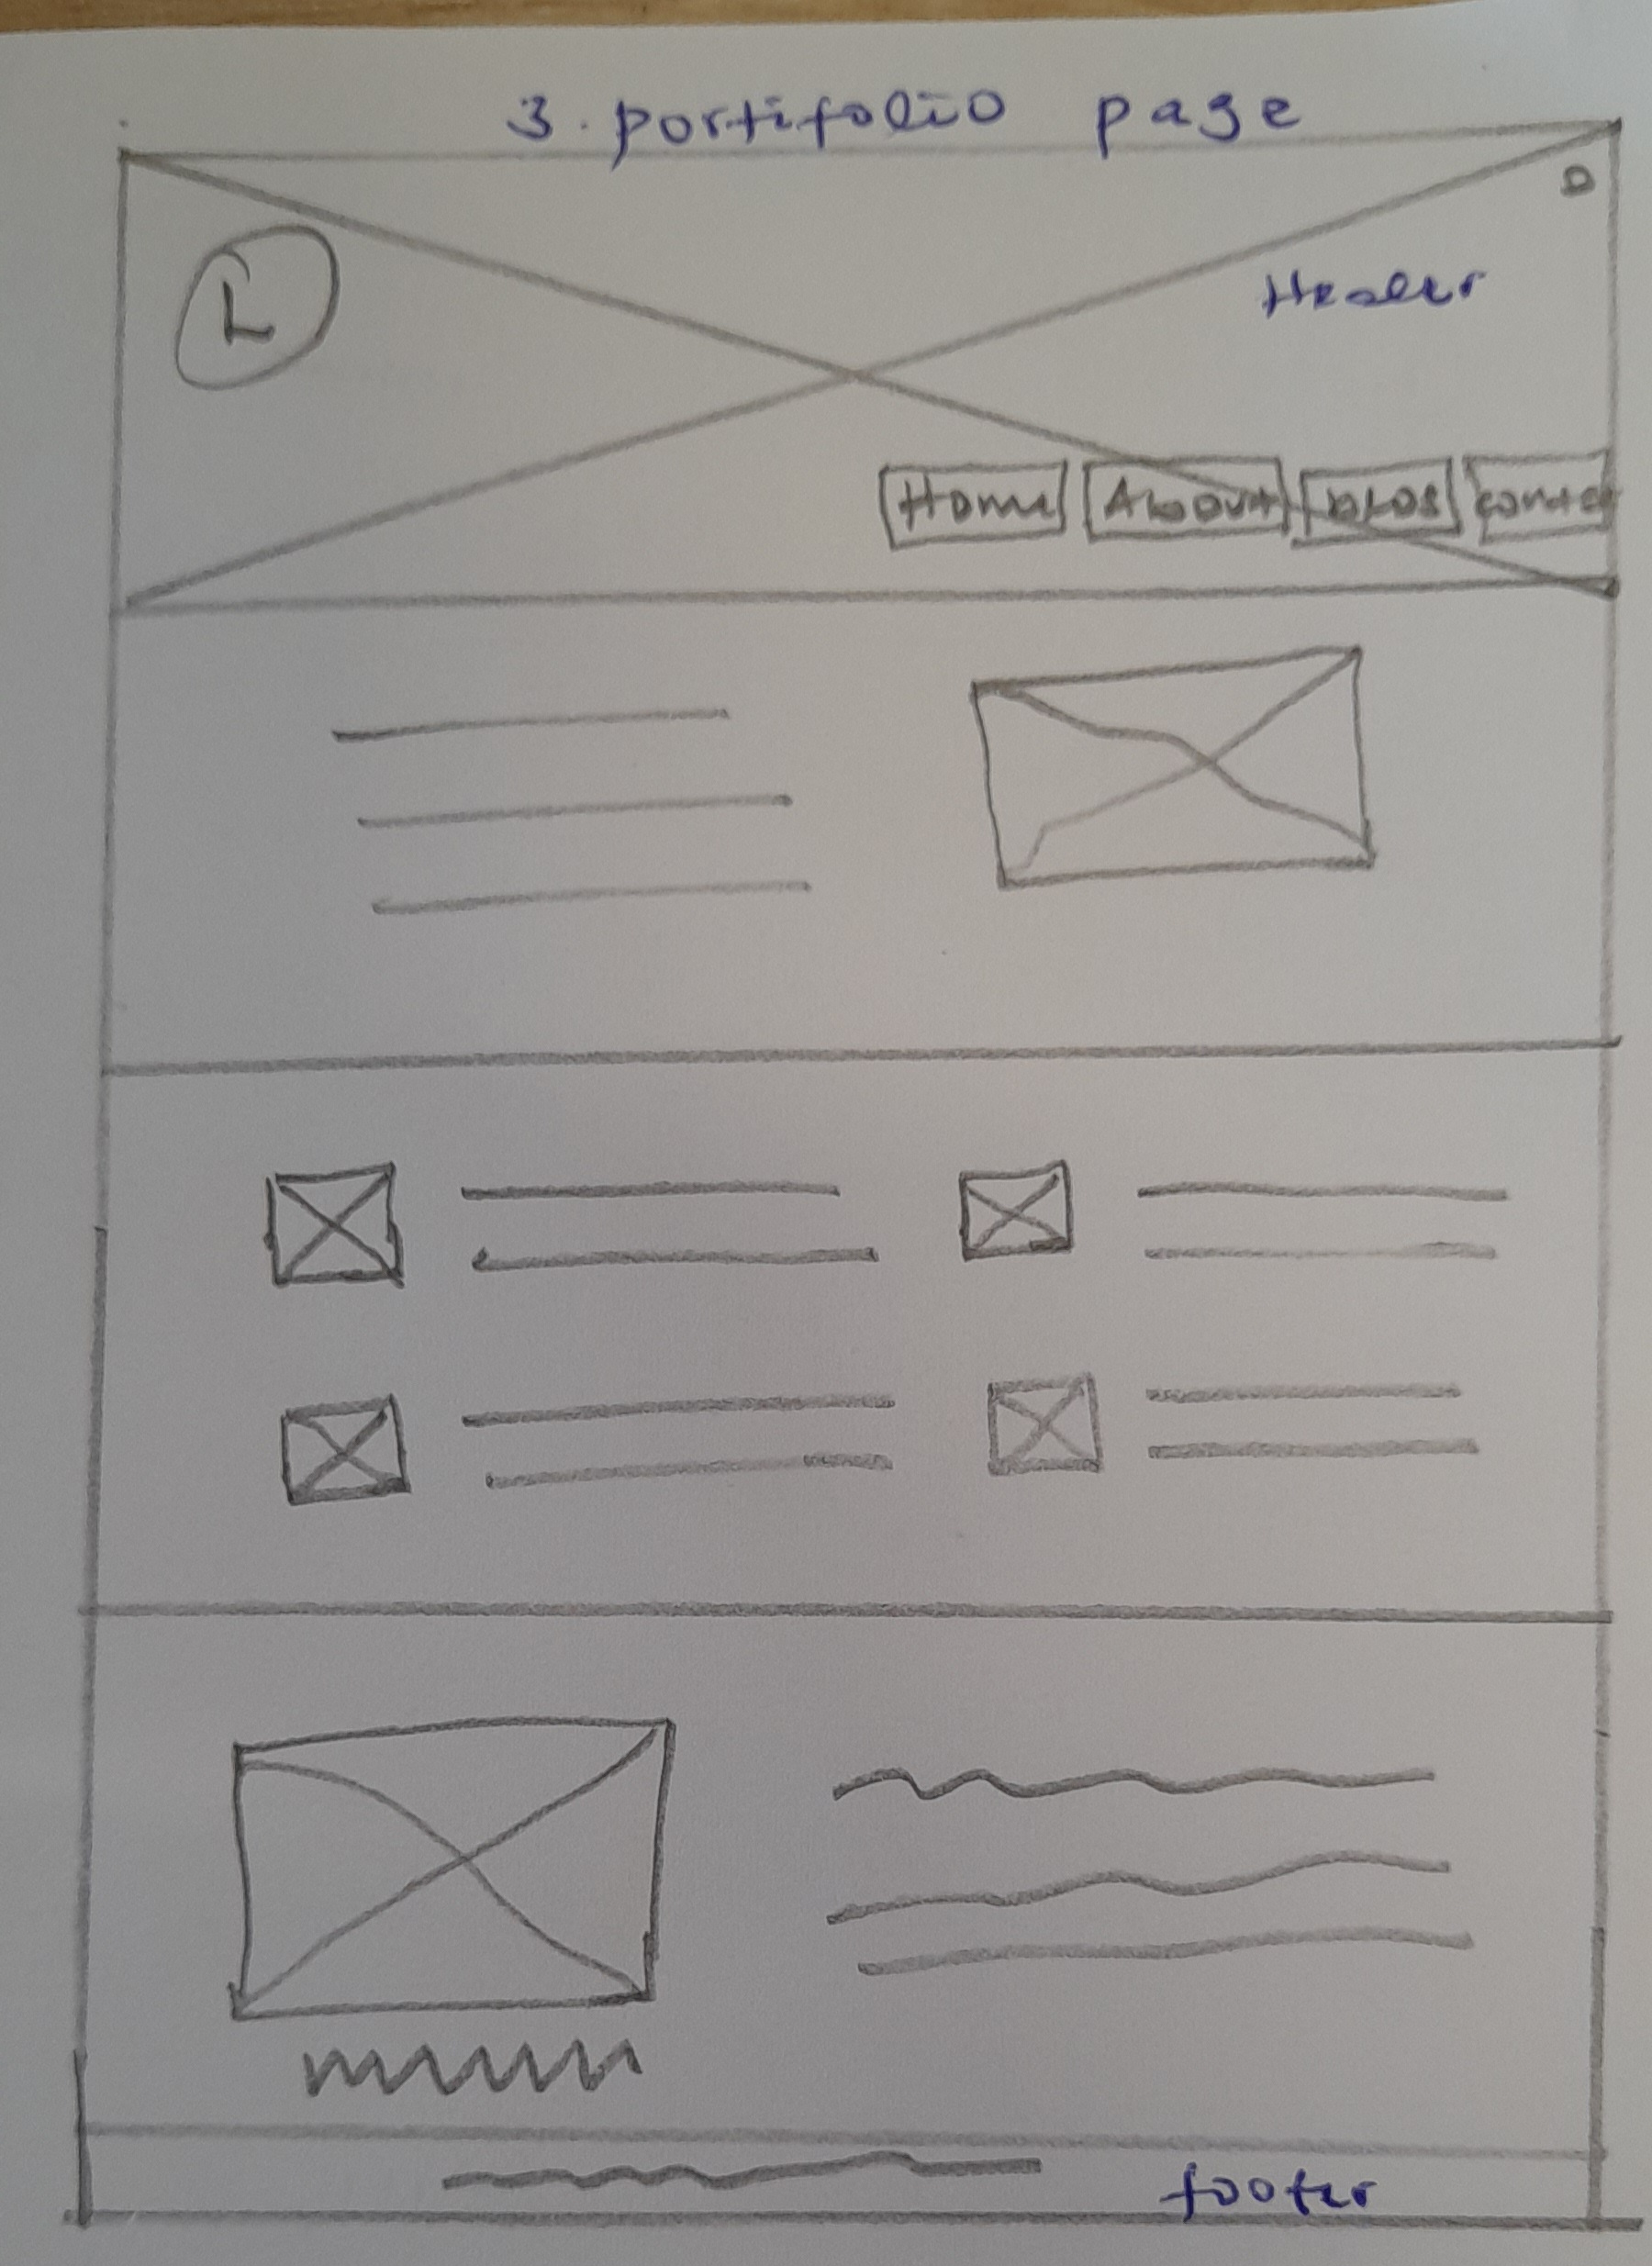 3. portifolio page
L
Header
Home About blog contact
footer